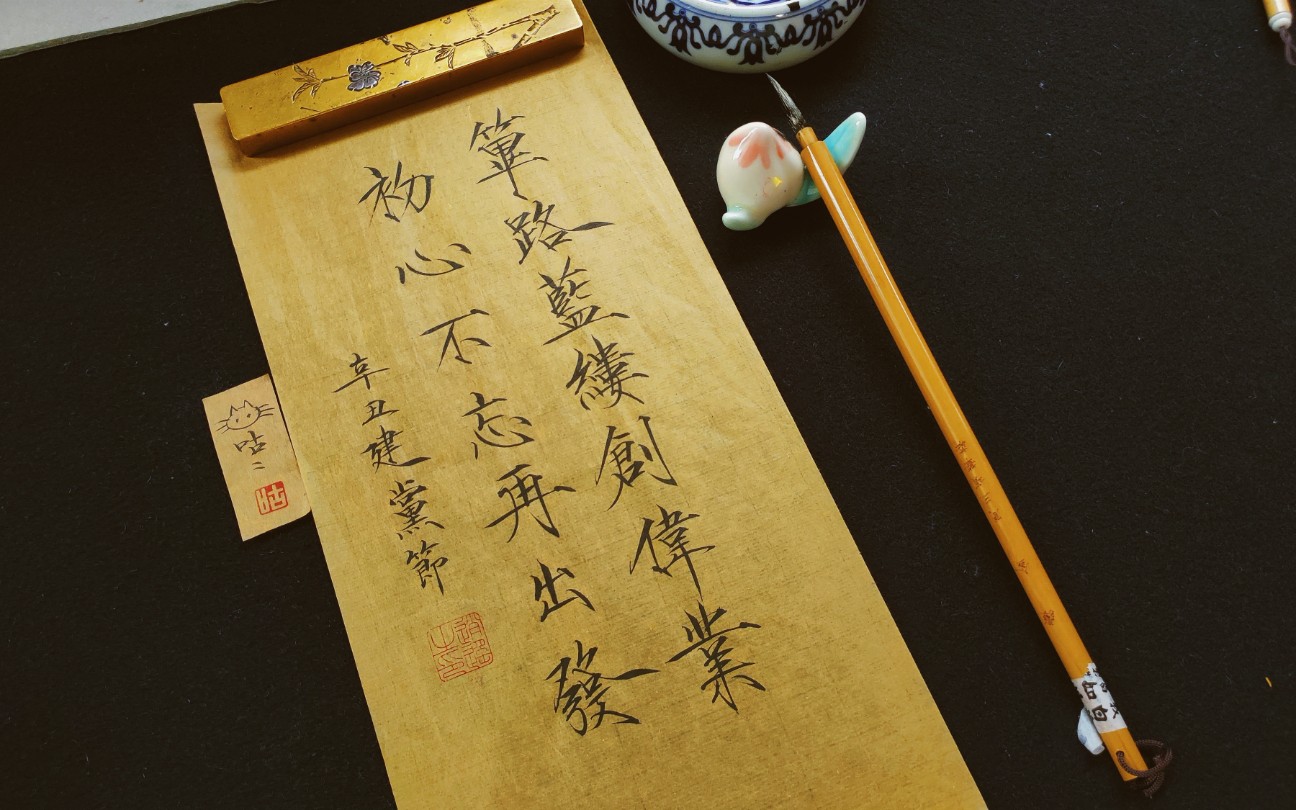 篳路藍縷創偉業
初心不忘再出發
辛丑建黨節
咕〻
咕